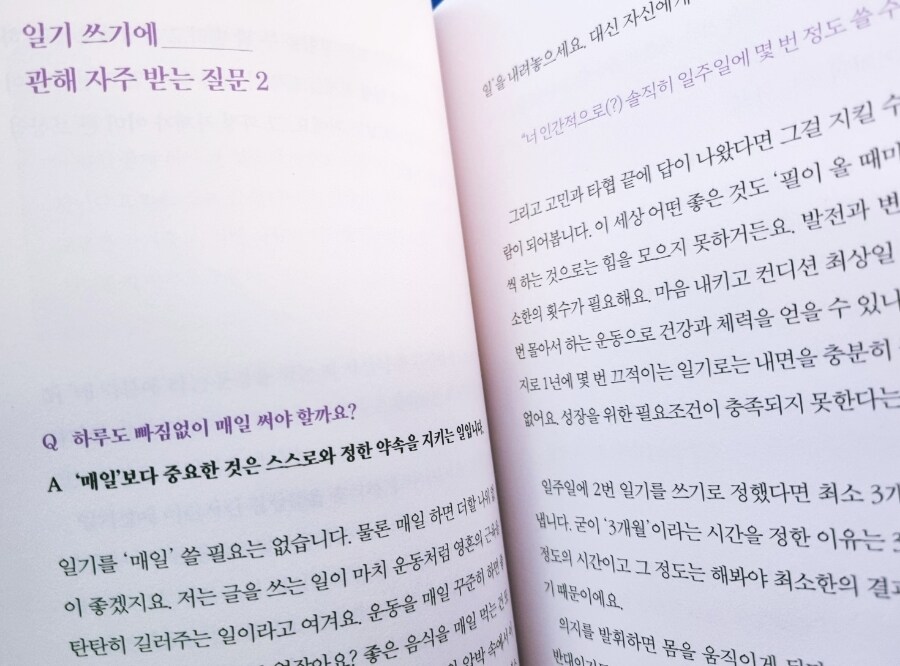 일기 쓰기에
관해 자주 받는 질문 2
Q 하루도 빠짐없이 매일 써야 할까요?
A ‘매일’보다 중요한 것은 스스로와 정한 약속을 지키는 일입니다.
일기를 ‘매일’ 쓸 필요는 없습니다. 물론 매일 하면 더할 나위 없
이 좋겠지요. 저는 글을 쓰는 일이 마치 운동처럼 영혼의 근육을
탄탄히 길러주는 일이라고 여겨요. 운동을 매일 꾸준히 하면 좋
좋은 음식을 매일 먹는 건요
압박 속에서
일’을 내려놓으세요. 대신 자신에게
“너 인간적으로(?) 솔직히 일주일에 몇 번 정도 쓸 수
그리고 고민과 타협 끝에 답이 나왔다면 그걸 지킬 수
람이 되어봅니다. 이 세상 어떤 좋은 것도 ‘필이 올 때마
씩 하는 것으로는 힘을 모으지 못하거든요. 발전과 변
소한의 횟수가 필요해요. 마음 내키고 컨디션 최상일
번 몰아서 하는 운동으로 건강과 체력을 얻을 수 있나
지로 1년에 몇 번 끄적이는 일기로는 내면을 충분히
없어요. 성장을 위한 필요조건이 충족되지 못한다는
일주일에 2번 일기를 쓰기로 정했다면 최소 3개
냅니다. 굳이 ‘3개월’이라는 시간을 정한 이유는 3
정도의 시간이고 그 정도는 해봐야 최소한의 결과
기 때문이에요.
의지를 발휘하면 몸을 움직이게 되